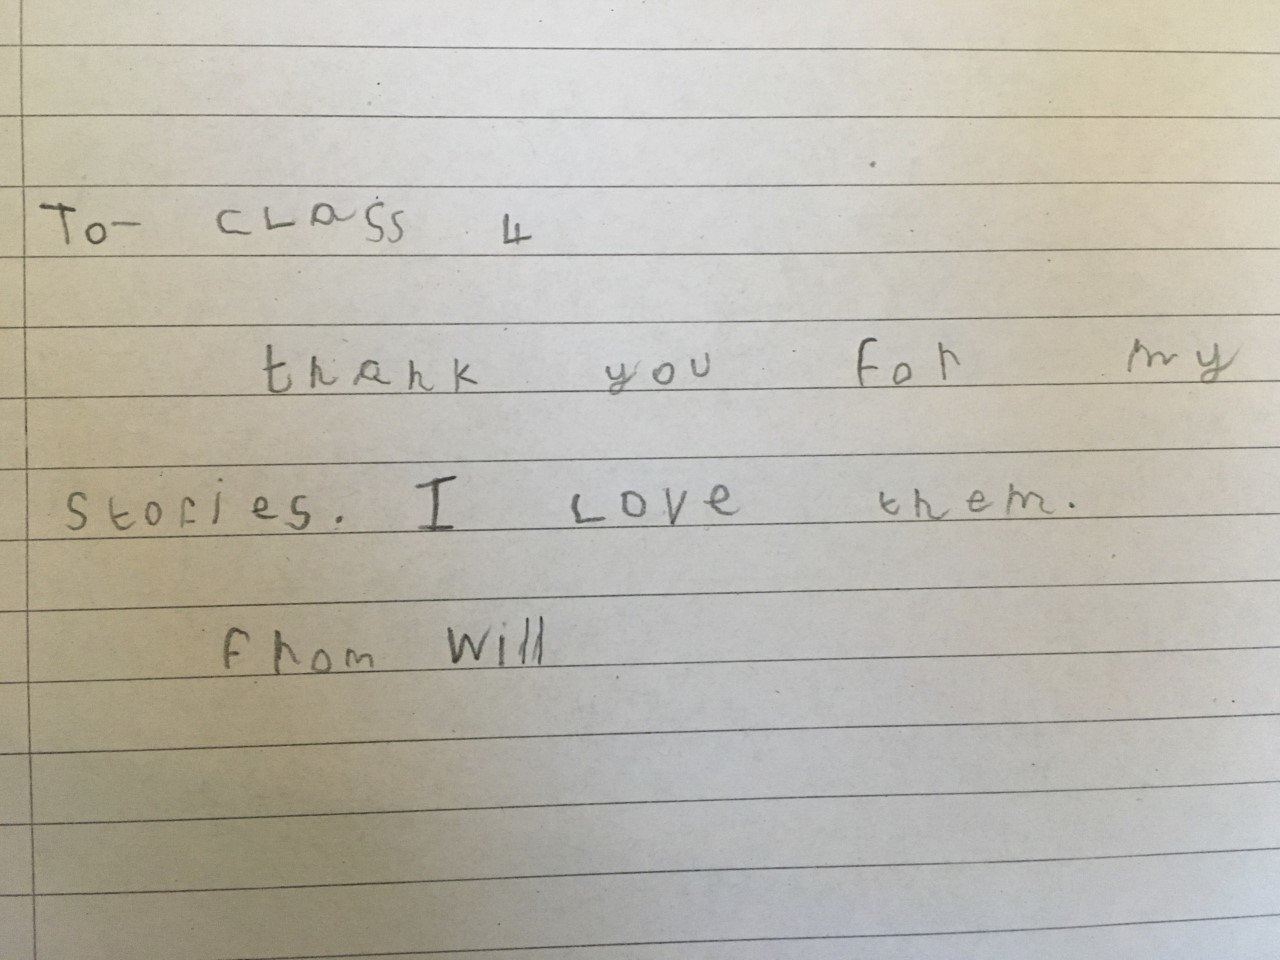 To- CLASS 4
thank you for my
stories. I Love them.
from Will